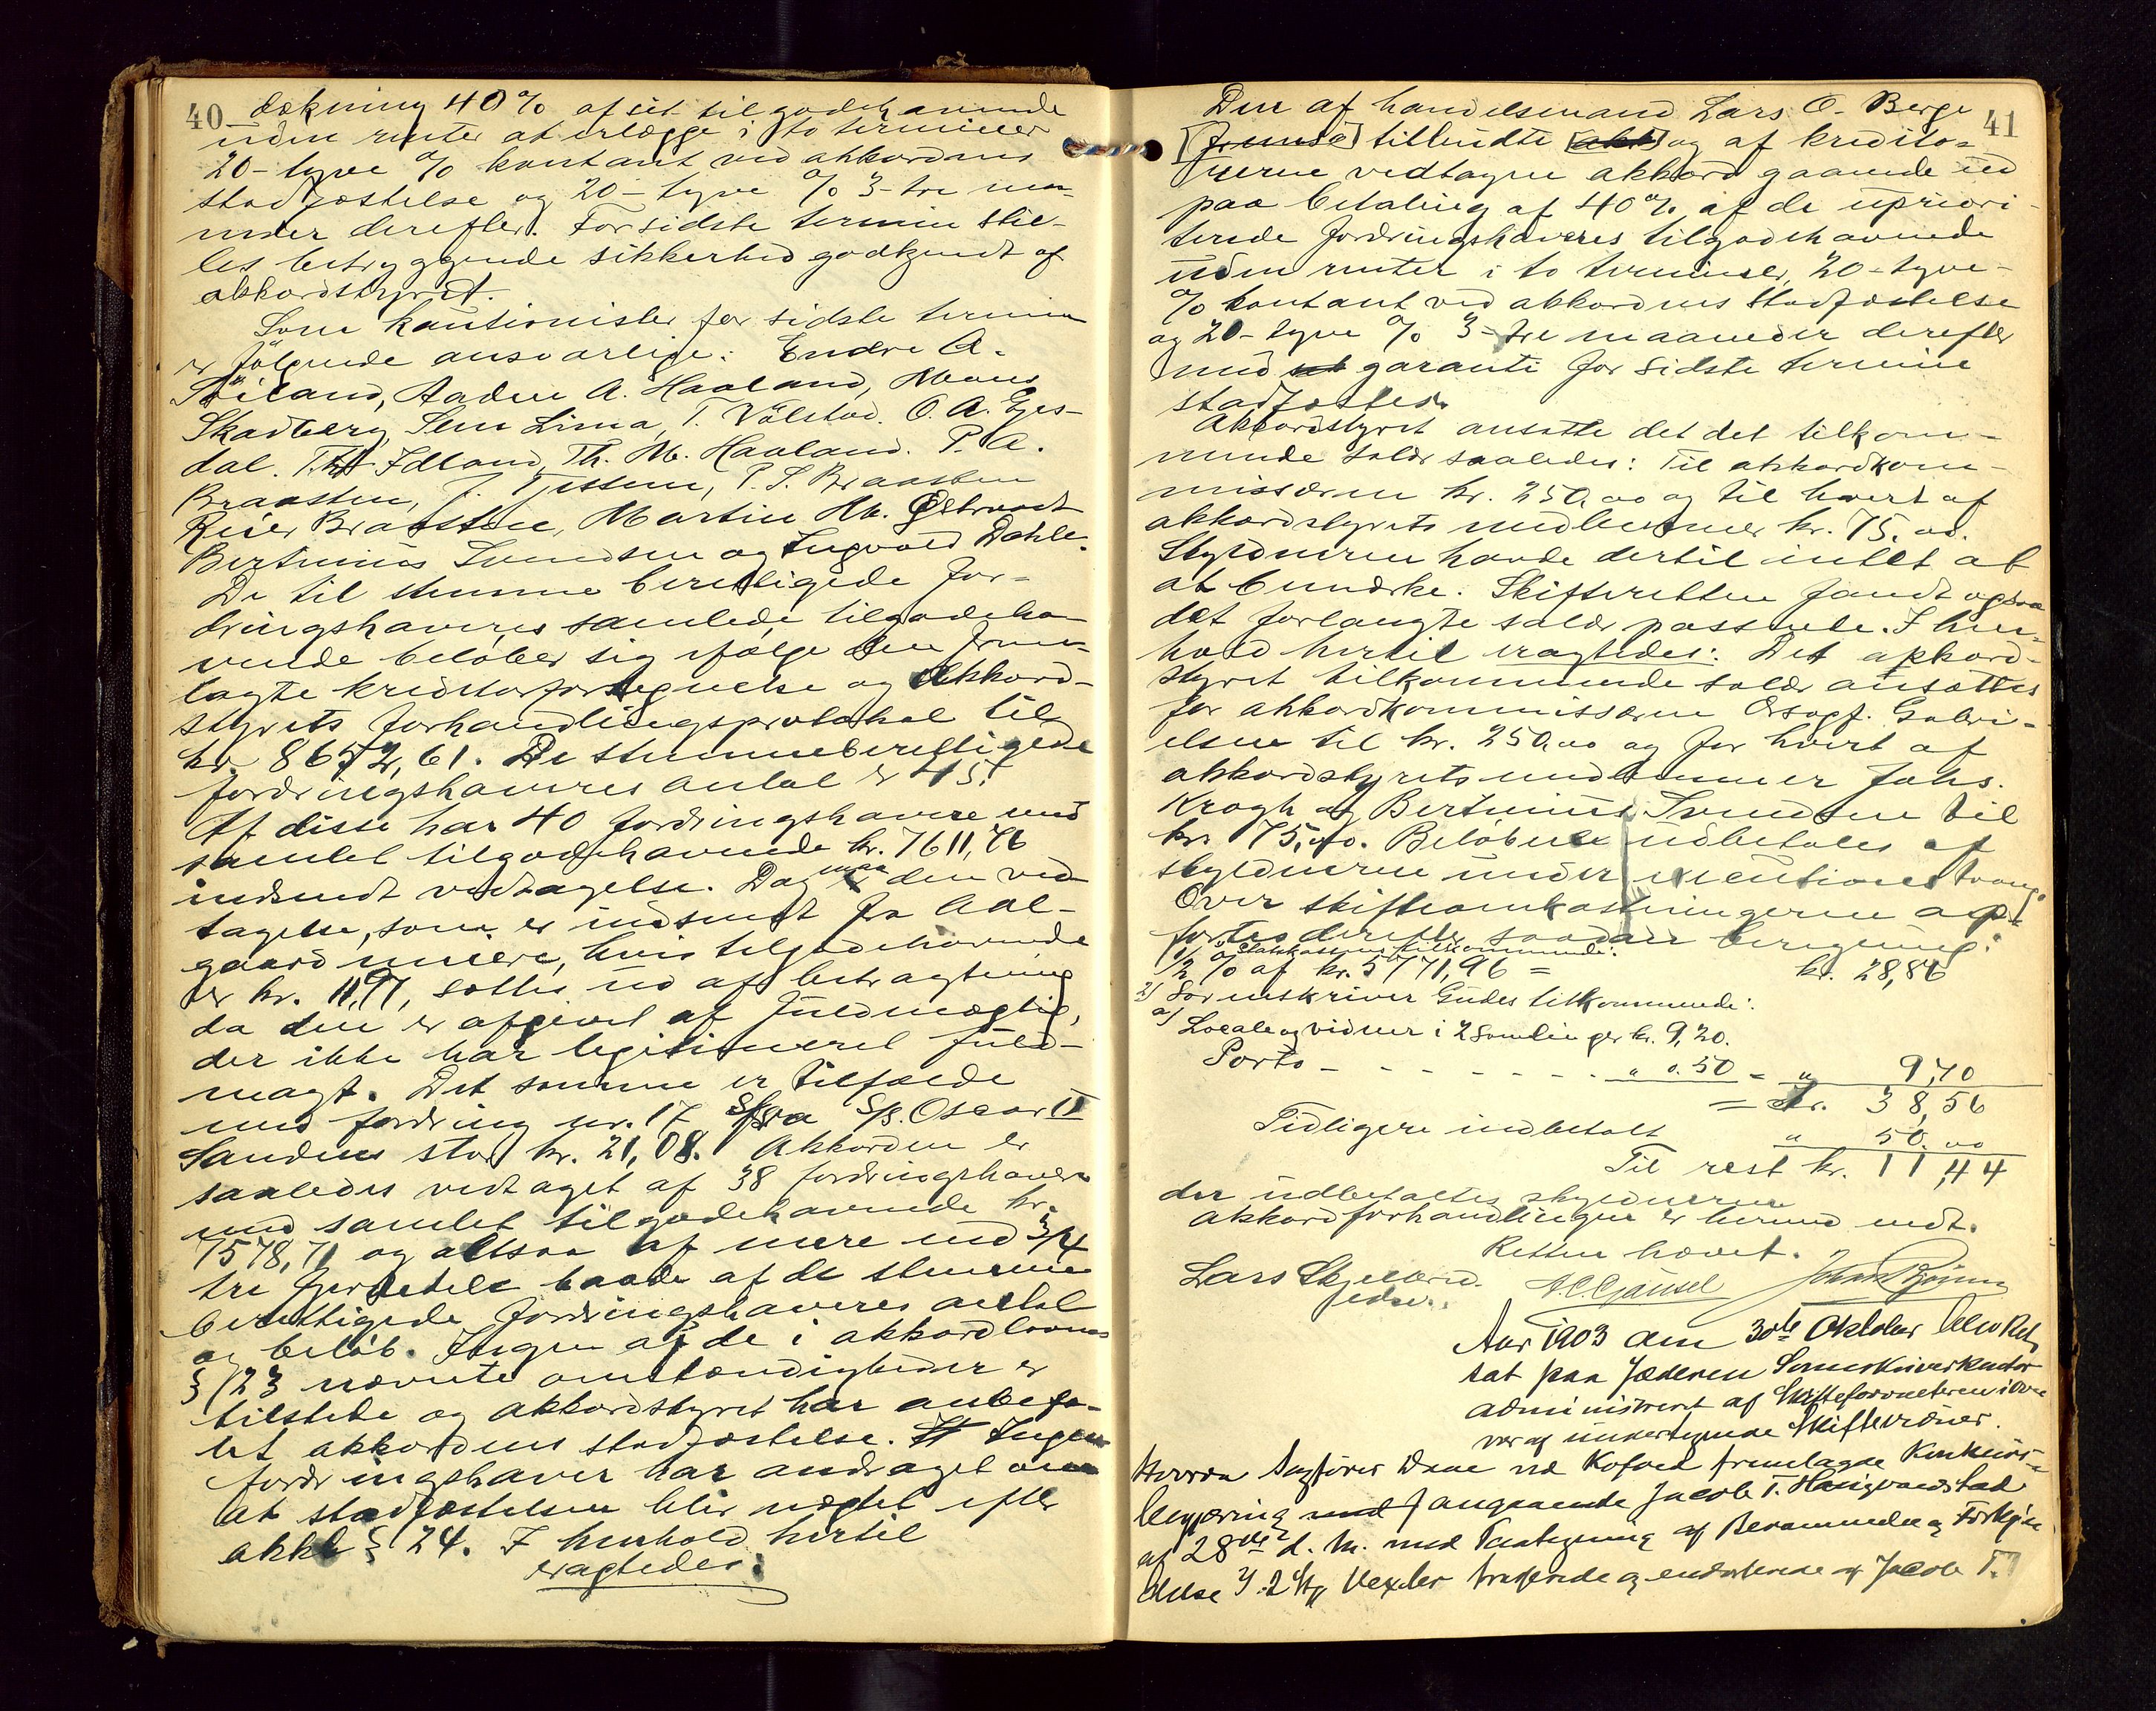 40
dækning 40% af sit tilgodehavende
uden renter at erlægge i to terminer
20 - tyve % kontant ved akkordens
stadfæstelse og 20 - tyve % 3 - tre maa-
neder derefter. For sidste termin stil-
les betryggende sikkerhed godkjendt af
akkordstyret.
Som kautionister for sidste termin
er følgende ansvarlige: Endre A.
Aaden A. Haaland, Mons
Skadberg, Sem Lima, T. Vølstad. O. A. Gjes-
dal. Idland, Th. M. Haaland. P. A.
Braasten, J. Tjessem, P. S. Braasten
Reier Braasten, Martin M. Østraadt
Bertinius Svendsen og Ingvald Dahle.
De til stemme berettigede for-
dringshaveres samlede tilgodeha-
vende beløber sig ifølge den frem-
lagte kreditorfortegnelse og akkord-
styrets forhandlingsprotokol til
kr. 8652,61. De stemmeberettigede
fordringshaveres antal er 45.
Af disse har 40 fordringshavere med
samlet tilgodehavende kr. 7611,76
indsendt vedtagelse. Dog maa den ved-
tagelse, som er indsendt fra Aal-
gaard meieri, hvis tilgodehavende
er kr. 11,97, sættes ud af betragtning
da den er afgivet af fuldmægtig,
der ikke har legitimeret fuld-
magt. Det samme er tilfælde
med fordring nr. 17 fra Sp. Oscar II
Sandnes stor kr. 21,08. Akkorden er
saaledes vedtaget af 38 fordringshavere
med samlet tilgodehavende kr.
7578,71 og altsaa af mere end 3/4
tre fjerdedele baade af de stemme-
berettigede fordringshaveres antal
og beløb. Ingen af de i akkordlovens
§ 23 nævnte omstændigheder er
tilstede og akkordstyret har anbefa-
let akkordens stadfæstelse. Ingen
fordringshaver har andraget om
at stadfæstelsen blir nægtet efter
akkl § 24. I henhold hertil
eragtedes:
41
Den af handelsmand Lars O. Berge
[fremsa] tilbudte [akk] og af kredito-
rerne vedtagne akkord gaaende ud
paa betaling af 40% af de upriori-
terede fordringshaveres tilgodehavende
uden renter i to terminer, 20 - tyve -
% kontant ved akkordens stadfæstelse
og 20 - tyve % 3 - tre maaneder derefter
med garanti for sidste termin
stadfæstes.
Akkordstyret ansatte det det tilkom-
mende salær saaledes: Til akkordkom-
missæren kr. 250,00 og til hvert af
akkordstyrets medlemmer kr. 75,00.
Skyldneren havde dertil intet at
at bemærke. Skifteretten fandt ogsaa
det forlangte salær passende. I hen-
hold hertil eragtedes: Det akkord-
styret tilkommende salær ansættes
for akkordkommissæren Orsagf. Gabri-
elsen til kr. 250,00 og for hvert af
akkordstyrets medlemmer Johs.
Krogh og Bertinius Svendsen til
kr. 75,00. Beløbene udbetales af
skyldneren under executionstvang.
Over skifteomkostningerne op-
førtes derefter saadan beregning:
1) Statskassens tilkommende:
1/2 % af kr. 5771,96 = kr. 28,86
2) Sorenskriver Gudes tilkommende:
a) Locale og vidner i 2 samlinger kr. 9,20.
Porto - - - - - - - " 0.50 = " 9,70
= kr. 38,56
Tidligere indbetalt " 50,00
Til rest kr. 11,44
der udbetaltes skyldneren
Akkordforhandlingen er hermed endt.
Retten hævet.
Lars Skjelbred
edsv.
Aar 1903 den 30te Oktober blev Ret
sat paa Jæderens Sorenskriverkontor
administreret af Skifteforvalteren i Over-
vær af undertegnede Skiftevidner.
Hvorda Sagfører Daae ved Kofoed fremlagde Konkurs-
begjæring angaaende Jacob T.
af 28de d. M. med Paategning af Berammelse og Forkyn-
delse 2) 2 Stk Vexler trasserede og endosserede af Jacob T.